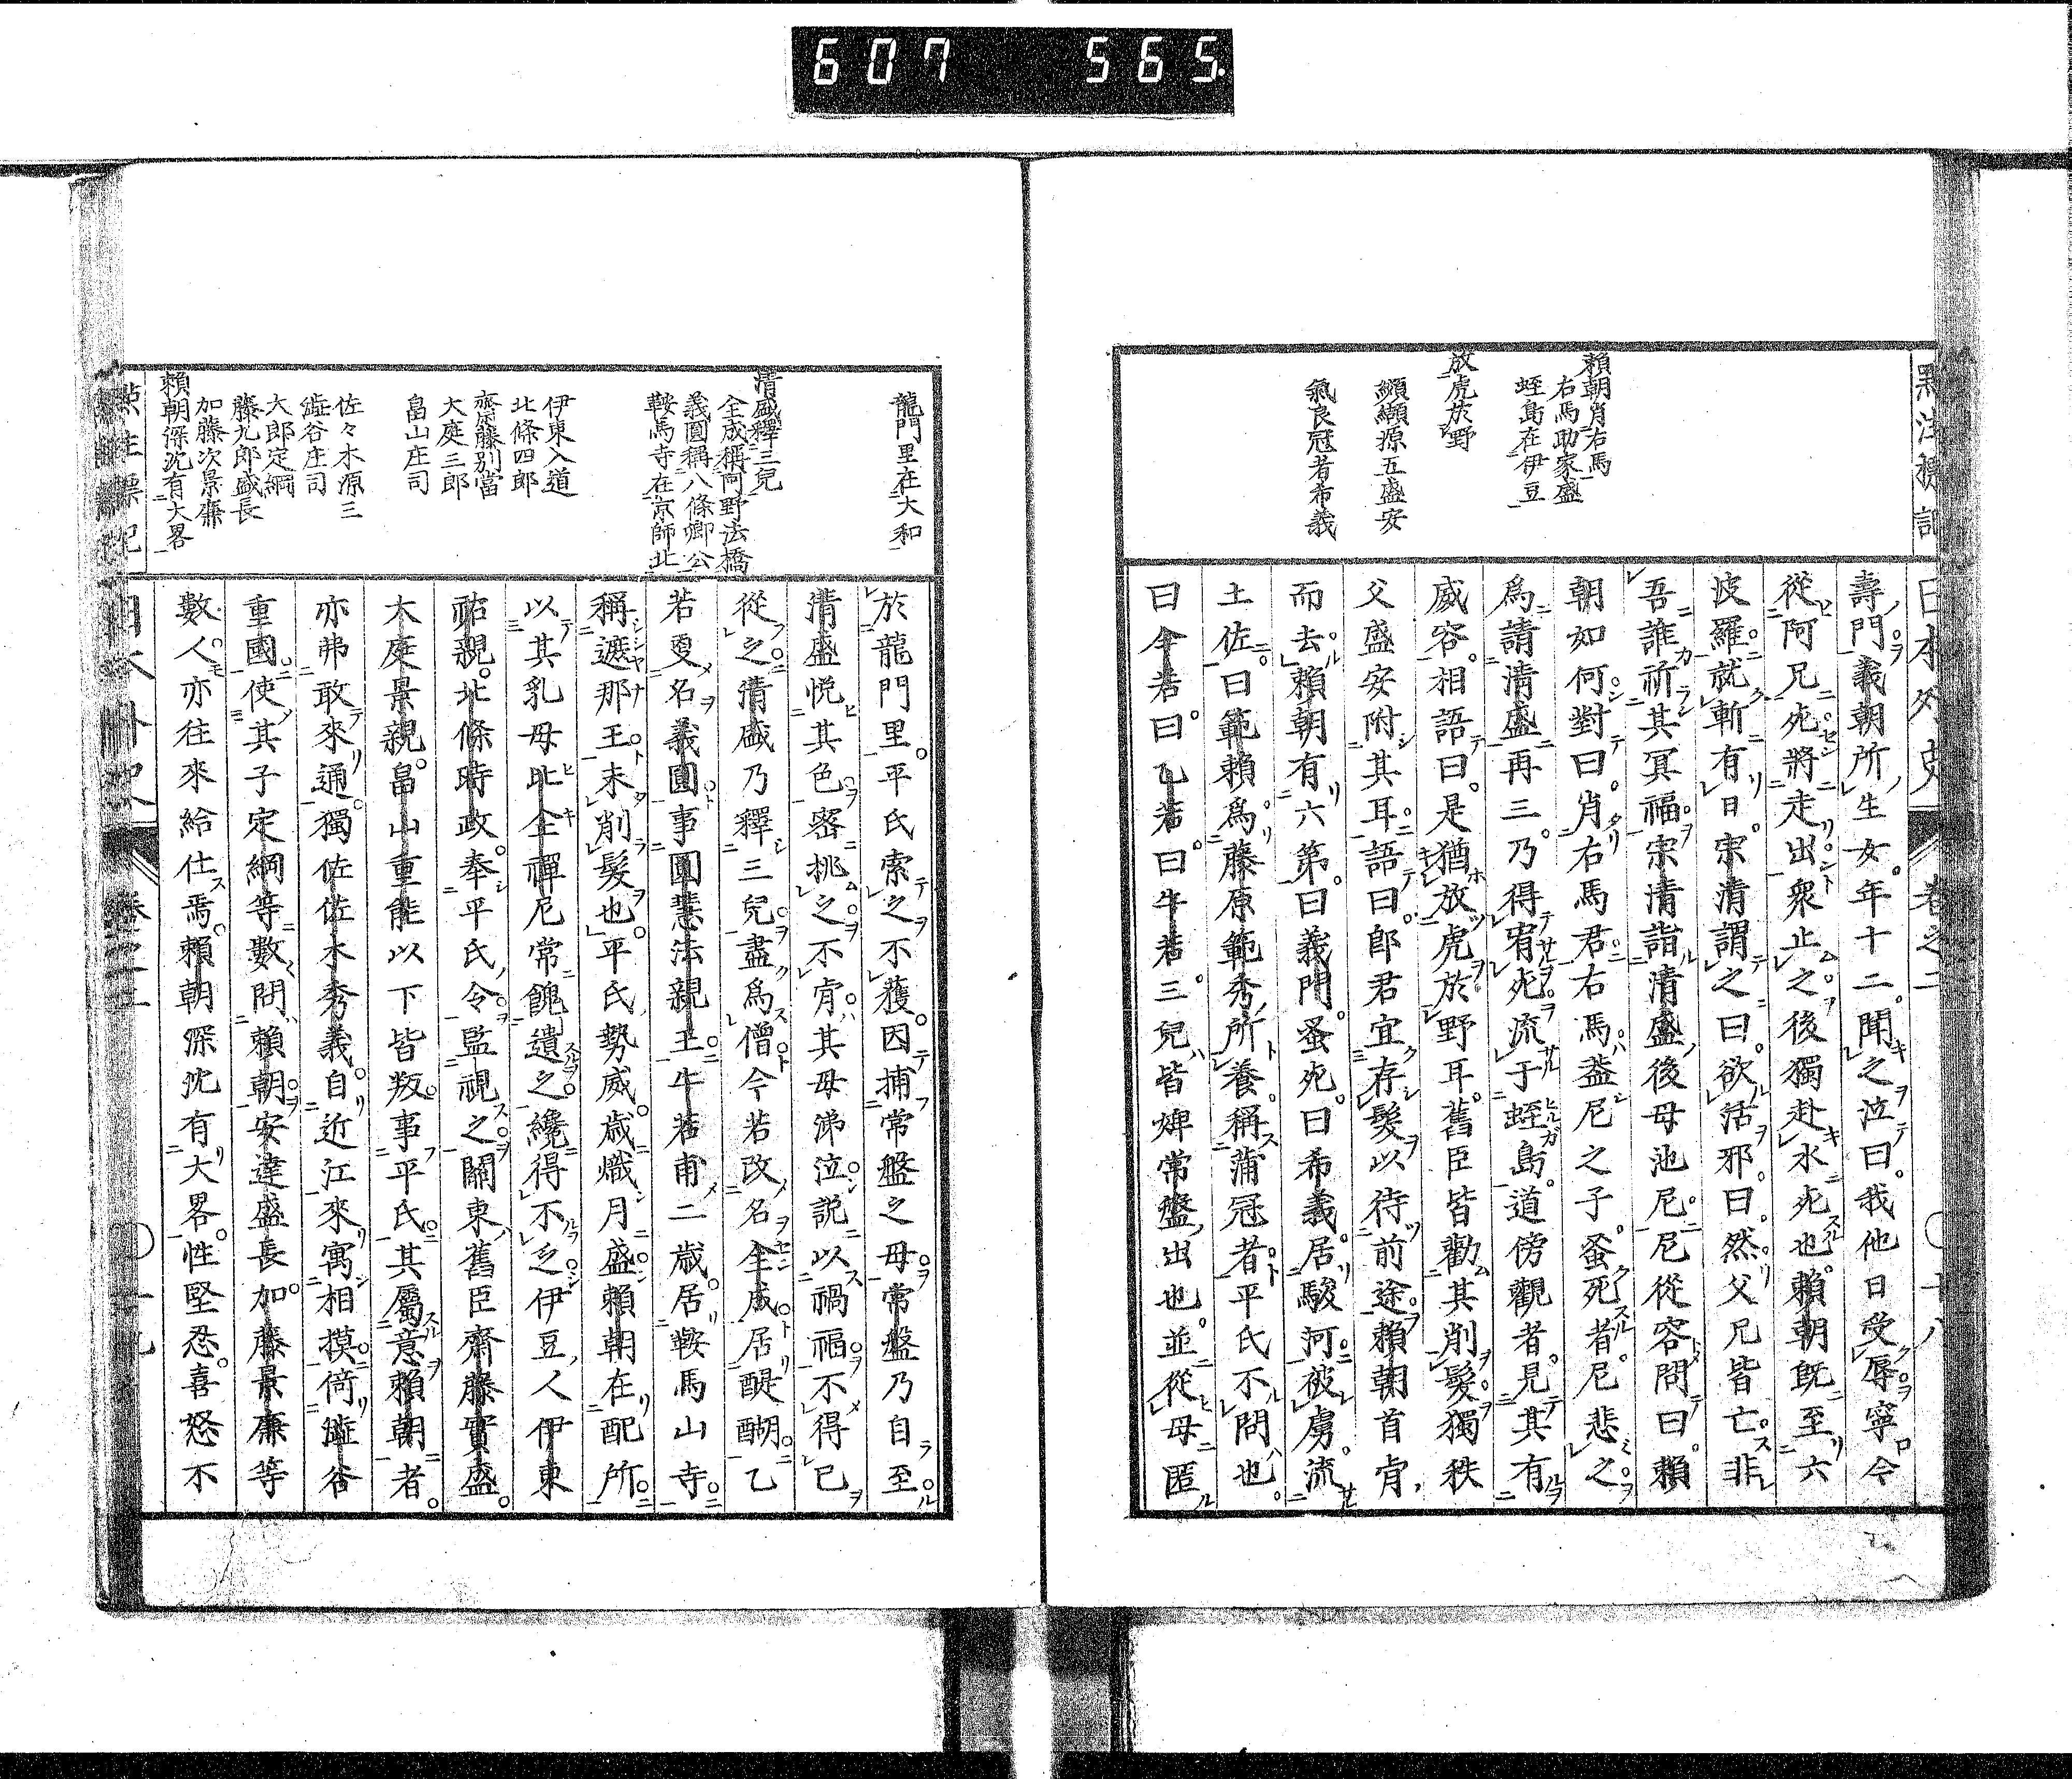 607 565.
點注標記
頼朝肖右馬
右馬助家盛
蛭島在伊豆
放虎於野
纐纈源五盛安
氣良冠者希義
日本外史 卷之二 〇十八
壽門義朝所生女。年十二。聞之泣曰。我他日受辱寧令
從阿兄死將走出衆止之。後獨赴水死也。賴朝旣至六
波羅就斬有日。宗清謂之曰。欲活邪。曰。然。父兄皆亡。非
吾誰祈其冥福。宗清詣清盛後母池尼。尼從容問曰。賴
朝如何。對曰。肖右馬君。右馬蓋尼之子蚤死者。尼悲之
爲請清盛再三。乃得宥死。流于蛭島。道傍觀者。見其有
威容。相語曰。是猶放虎於野耳。舊臣皆勸其削髮。獨秩
父盛安附其耳。語曰。郎君宜存髮以待前途。賴朝首肯
而去。賴朝有六第。曰義門。蚤死。曰希義。居駿河。被虜。流
土佐。曰範賴。爲藤原範秀所養。稱蒲冠者。平氏不問也。
曰今若。曰乙若。曰牛若。三兒皆婢常盤出也。並從母匿
龍門里在大和
清盛釋三兒
全成稱阿野法橋
義圓稱八條卿公
鞍馬寺在京師北
伊東入道
北條四郎
齋藤別當
大庭三郎
畠山庄司
佐々木源三
澁谷庄司
大郎定綱
藤九郎盛長
加藤次景廉
賴朝深沈有大畧
於龍門里。平氏索之不獲。因捕常盤之母。常盤乃自至。
清盛悅其色。密挑之。不肯。其母涕泣說以禍福。不得已
從之。清盛乃釋三兒。盡爲僧。今若改名全成。居醍醐。乙
若更名義圓。事圓慧法親王。牛若甫二歲。居鞍馬山寺。
稱遮那王。未削髮也。平氏勢威歲熾月盛。賴朝在配所。
以其乳母比企禪尼常餽遺之。纔得不乏。伊豆人伊東
祐親。北條時政。奉平氏令。監視之。關東舊臣齋藤實盛。
大庭景親。畠山重能以下皆叛。事平氏。其屬意賴朝者。
亦弗敢來通。獨佐佐木秀義。自近江來寓相摸。倚澁谷
重國。使其子定綱等數問賴朝。安達盛長。加藤景廉等
數人。亦往來給仕焉。賴朝深沈有大畧。性堅忍。喜怒不
點注標記